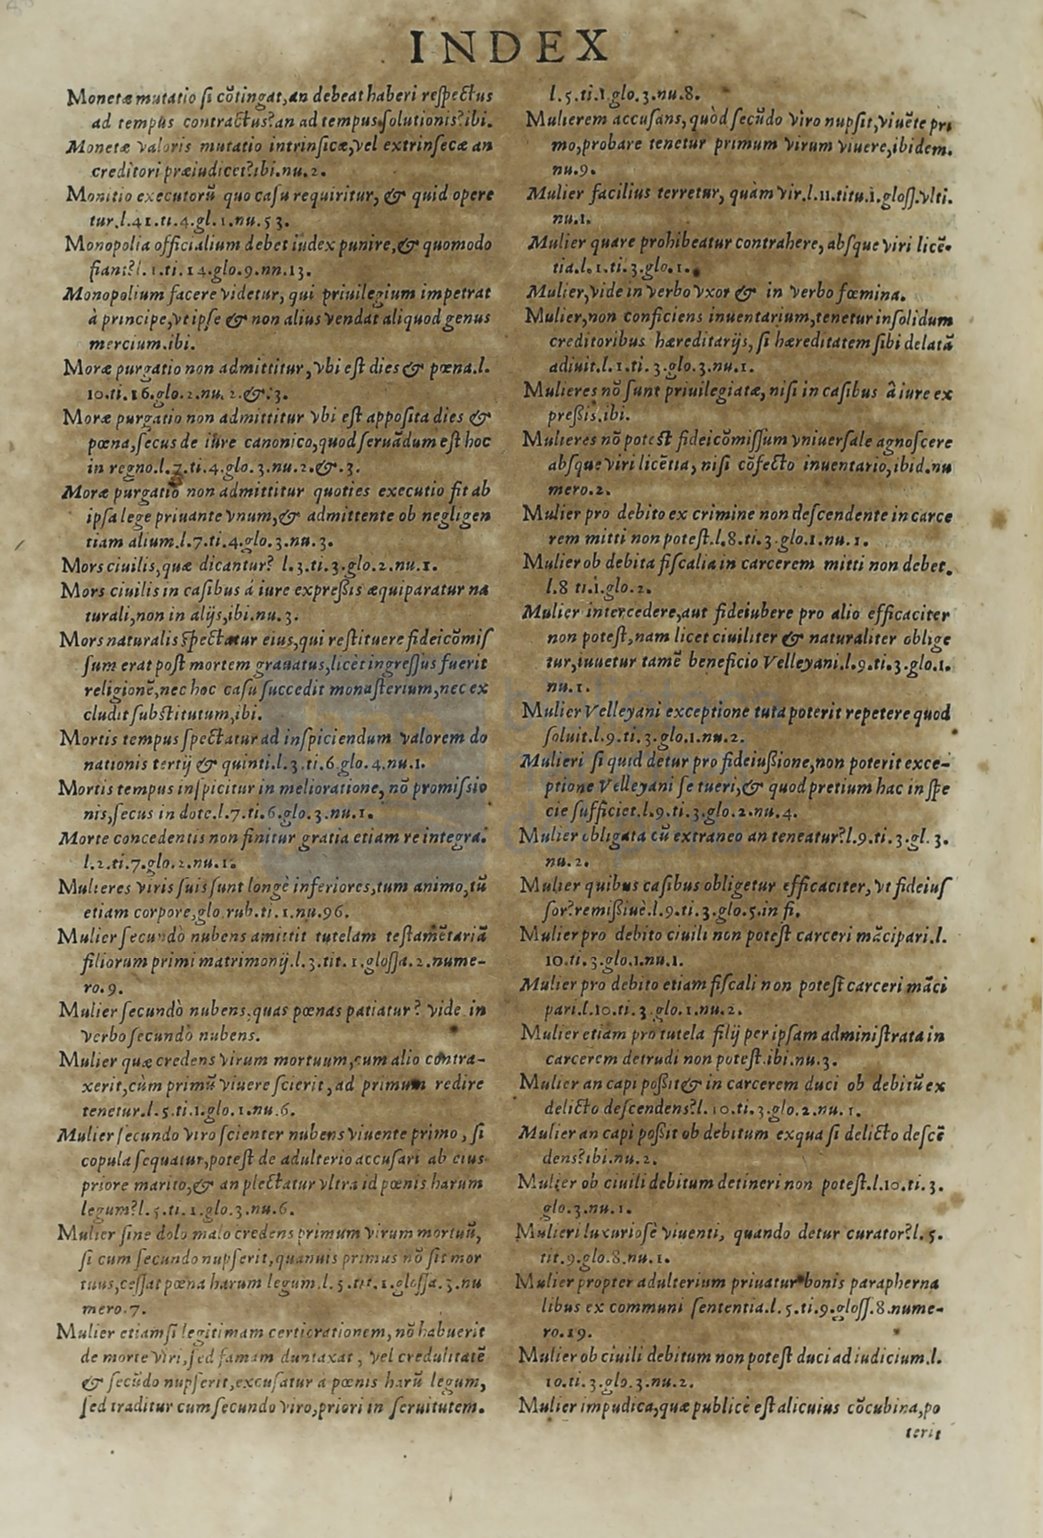 INDEX
Monetæ mutatio si cõtingat, an debeat haberi respectus
ad tempus contractus? an ad tempus solutionis? ibi.
Monetæ valoris mutatio intrinsicæ, vel extrinsecæ an
creditori præiudicet? ibi. nu. 2.
Monitio executorũ quo casu requiritur, & quid opere
tur. l. 41. ti. 4. gl. 1. nu. 53.
Monopolia officialium debet iudex punire, & quomodo
fiant? l. 1. ti. 14. glo. 9. nn. 13.
Monopolium facere videtur, qui priuilegium impetrat
à principe, vt ipse & non alius vendat aliquod genus
mercium. ibi.
Moræ purgatio non admittitur, vbi est dies & pœna. l.
10. ti. 16. glo. 2. nu. 2. &. 3.
Moræ purgatio non admittitur vbi est apposita dies &
pœna, secus de iure canonico, quod seruãdum est hoc
in regno. l. 7. ti. 4. glo. 3. nu. 2. &. 3.
Moræ purgatio non admittitur quoties executio fit ab
ipsa lege priuante vnum, & admittente ob negligen
tiam alium. l. 7. ti. 4. glo. 3. nu. 3.
Mors ciuilis, quæ dicantur? l. 3. ti. 3. glo. 2. nu. 1.
Mors ciuilis in casibus á iure expressis æquiparatur na
turali, non in alijs, ibi. nu. 3.
Mors naturalis spectatur eius, qui restituere fideicõmis
sum erat post mortem grauatus, licèt ingressus fuerit
religionẽ, nec hoc casu succedit monasterium, nec ex
cludit substitutum, ibi.
Mortis tempus spectatur ad inspiciendum valorem do
nationis tertij & quinti. l. 3. ti. 6. glo. 4. nu. 1.
Mortis tempus inspicitur in melioratione, nõ promissio
nis, secus in dote. l. 7. ti. 6. glo. 3. nu. 1.
Morte concedentis non finitur gratia etiam re integra.
l. 2. ti. 7. glo. 2. nu. 1.
Mulieres viris suis sunt longè inferiores, tum animo, tũ
etiam corpore, glo. rub. ti. 1. nu. 96.
Mulier secundò nubens amittit tutelam testamẽtariã
filiorum primi matrimonij. l. 3. tit. 1. glossa. 2. nume-
ro. 9.
Mulier secundò nubens, quas pœnas patiatur? vide in
verbo secundò nubens.
Mulier quæ credens virum mortuum, cum alio contra-
xerit, cùm primũ viuere scierit, ad primum redire
tenetur. l. 5. ti. 1. glo. 1. nu. 6.
Mulier secundo viro scienter nubens viuente primo, si
copula sequatur, potest de adulterio accusari ab eius
priore marito, & an plectatur vltra id pœnis harum
legum? l. 5. ti. 1. glo. 3. nu. 6.
Mulier sine dolo malo credens primum virum mortuũ,
si cum secundo nupserit, quamuis primus nõ sit mor
tuus, cessat pœna harum legum. l. 5. tit. 1. glossa. 3. nu
mero. 7.
Mulier etiam si legitimam certiorationem, nõ habuerit
de morte viri, sed famam duntaxat, vel credulitatẽ
& secũdo nupserit, excusatur á pœnis harũ legum,
sed traditur cum secundo viro, priori in seruitutem.
l. 5. ti. 1. glo. 3. nu. 8.
Mulierem accusans, quòd secũdo viro nupsit, viuẽte pri
mo, probare tenetur primum virum viuere, ibidem.
nu. 9.
Mulier facilius terretur, quàm vir. l. 11. titu. 1. gloss. vlti.
nu. 1.
Mulier quare prohibeatur contrahere, absque viri licẽ-
tia. l. 1. ti. 3. glo. 1.
Mulier, vide in verbo vxor & in verbo fœmina.
Mulier, non conficiens inuentarium, tenetur in solidum
creditoribus hæreditarijs, si hæreditatem sibi delatã
adiuit. l. 1. ti. 3. glo. 3. nu. 1.
Mulieres nõ sunt priuilegiatæ, nisi in casibus â iure ex
pressis. ibi.
Mulieres nõ potest fideicõmissum vniuersale agnoscere
absque viri licẽtia, nisi cõfecto inuentario, ibid. nu
mero. 2.
Mulier pro debito ex crimine non descendente in carce
rem mitti non potest. l. 8. ti. 3. glo. 1. nu. 1.
Mulier ob debita fiscalia in carcerem mitti non debet.
l. 8 ti. i. glo. 2.
Mulier intercedere, aut fideiubere pro alio efficaciter
non potest, nam licet ciuiliter & naturaliter oblige
tur, iuuetur tamẽ beneficio Velleyani. l. 9. ti. 3. glo. 1.
nu. 1.
Mulier Velleyani exceptione tuta poterit repetere quod
soluit. l. 9. ti. 3. glo. 1. nu. 2.
Mulieri si quid detur pro fideiussione, non poterit exce-
ptione Velleyani se tueri, & quod pretium hac in spe
cie sufficiet. l. 9. ti. 3. glo. 2. nu. 4.
Mulier obligata cũ extraneo an teneatur? l. 9. ti. 3. gl. 3.
nu. 2.
Mulier quibus casibus obligetur efficaciter, vt fideius
sor? remissiuè. l. 9. ti. 3. glo. 5. in fi.
Mulier pro debito ciuili non potest carceri mãcipari. l.
10. ti. 3. glo. 1. nu. 1.
Mulier pro debito etiam fiscali non potest carceri mãci
pari. l. 10. ti. 3. glo. 1. nu. 2.
Mulier etiam pro tutela filij per ipsam administrata in
carcerem detrudi non potest. ibi. nu. 3.
Mulier an capi possit & in carcerem duci ob debitũ ex
delicto descendens? l. 10. ti. 3. glo. 2. nu. 1.
Mulier an capi possit ob debitum ex qua si delicto descẽ
dens? ibi. nu. 2.
Mulier ob ciuili debitum detineri non potest. l. 10. ti. 3.
glo. 3. nu. 1.
Mulieri luxuriosè viuenti, quando detur curator? l. 5.
tit. 9. glo. 8. nu. 1.
Mulier propter adulterium priuatur bonis parapherna
libus ex communi sententia. l. 5. ti. 9. gloss. 8. nume-
ro. 19.
Mulier ob ciuili debitum non potest duci ad iudicium. l.
10. ti. 3. glo. 3. nu. 2.
Mulier impudica, quæ publicè est alicuius cõcubina, po
terit